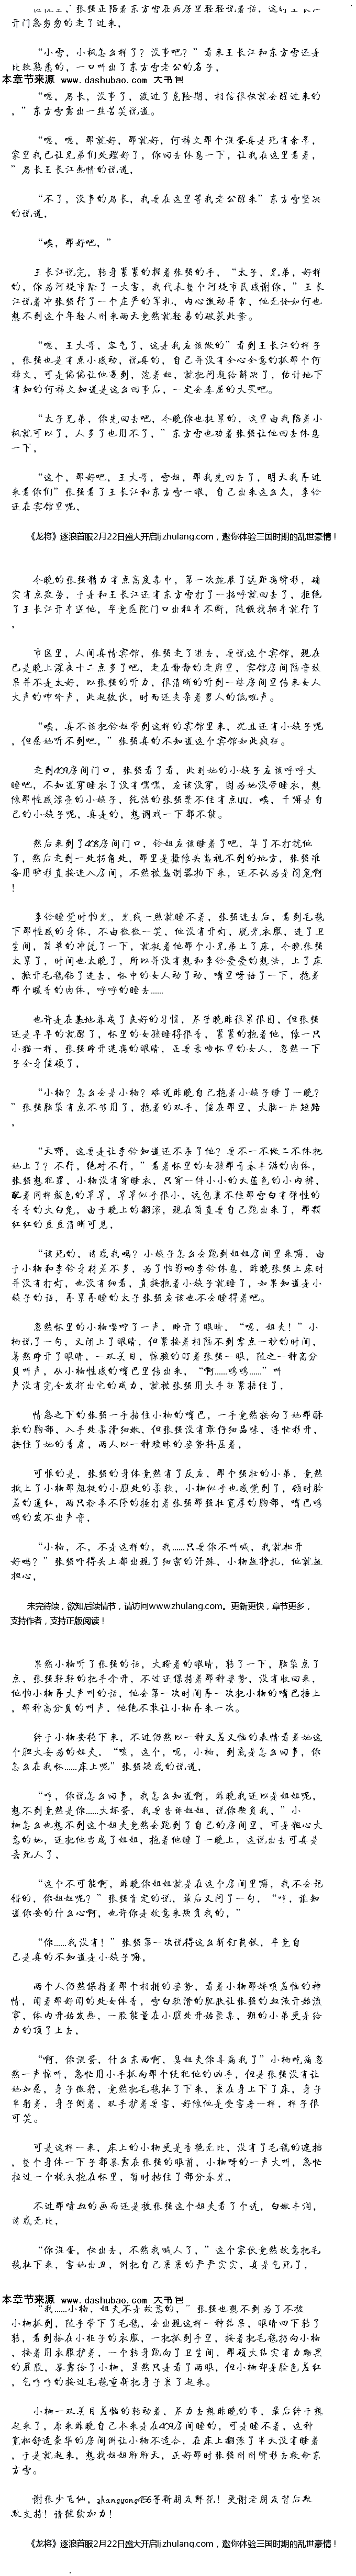 开门急匆匆的走了过来。
“小雪，小枫怎么样了？没事吧？”看来王长江和东方雪还是
比较熟悉的，一口叫出了东方雪老公的名字。
本章节来源 www.dashubao.com 大书包
“嗯，局长，没事了，渡过了危险期，相信很快就会醒过来的
。”东方雪露出一丝苦笑说道。
“嗯，嗯，那就好，那就好，何释文那个混蛋真是死有余辜，
家里我已让兄弟们处理好了，你回去休息一下，让我在这里看着，
”局长王长江热情的说道。
“不了，没事的局长，我要在这里等我老公醒来”东方雪坚决
的说道。
“唉，那好吧，”
王长江说完，转身紧紧的握着张强的手，“太子，兄弟，好样
的，你为河堤市除了一大害，我代表整个河堤市民感谢你，”王长
江说着冲张强行了一个庄严的军礼，内心激动异常，他无论如何也
想不到这个年轻人刚来两天竟然就轻易的破获此案。
“嗯，王大哥，客气了，这是我应该做的”看到王长江的样子
，张强也是有点小感动，说真的，自己并没有全心全意的抓那个何
释文，可是偏偏让他遇到，范着红，就把问题给解决了，估计地下
有知的何释文知道是这么回事后，一定会委屈的大哭吧。
“太子兄弟，你先回去吧，今晚你也挺累的，这里由我陪着小
枫就可以了，人多了也用不了，”东方雪也劝着张强让他回去休息
一下。
“这个，那好吧，王大哥，雪姐，那我先回去了，明天我再过
来看你们”张强看了王长江和东方雪一眼，自己出来这么久，李铃
还在宾馆里呢。
《龙将》逐浪首服2月22日盛大开启lj.zhulang.com，邀你体验三国时期的乱世豪情！
今晚的张强精力有点高度集中，第一次施展了远距离瞬移，确
实有点疲劳，于是和王长江还有东方雪打了一招呼就回去了，拒绝
了王长江开车送他，毕竟医院门口出租车不断，随便找辆车就行了
。
市区里，人间真情宾馆，张强走了进去，要说这个宾馆，现在
已是晚上深夜十二点多了吧，走在静静的走廊里，宾馆房间隔音效
果并不是太好，以张强的听力，很清晰的听到一些房间里传来女人
大声的呻吟声，此起彼伏，时而还夹杂着男人的低吼声。
“唉，真不该把铃姐带到这样的宾馆里来，况且还有小姨子呢
，但愿她听不到吧，”张强真的不知道这个宾馆如此疯狂。
走到409房间门口，张强看了看，此刻她的小姨子应该呼呼大
睡吧，不知道穿睡衣了没有嘿嘿，应该没穿，因为她没带睡衣，想
像那性感漂亮的小姨子，纯洁的张强禁不住有点YY，唉，干嘛是自
己的小姨子呢，真是的，想调戏一下都不能。
然后来到了408房间门口，铃姐应该睡着了吧，算了不打扰他
了，然后走到一处拐角处，那里是摄像头监视不到的地方，张强准
备用瞬移直接进入房间，不然被监制器拍下来，还不认为是闹鬼啊
！
李铃睡觉时怕光，光线一照就睡不着，张强进去后，看到毛毯
下那性感的身体，不由微微一笑，他没有开灯，脱光衣服，进了卫
生间，简单的冲洗了一下，就挺着他那个小兄弟上了床，今晚张强
太累了，时间也太晚了，所以并没有想和李铃爱爱的想法，上了床
，掀开毛毯钻了进去，怀中的女人动了动，嘴里呀语了一下，抱着
那个暖香的肉体，呼呼的睡去......
也许是在基地养成了良好的习惯，尽管晚昨很累很困，但张强
还是早早的就醒了，怀里的女孩睡得很香，紧紧的抱着他，像一只
小猫一样，张强睁开迷离的眼睛，正要亲吻怀里的女人，忽然一下
子全身僵硬了，
“小柳？怎么会是小柳？难道昨晚自己抱着小姨子睡了一晚？
”张强脑袋有点不够用了，抱着的双手，僵在那里，大脑一片短路
。
“天哪，这要是让李铃知道还不杀了他？要不一不做二不休把
她上了？不行，绝对不行，”看着怀里的女孩那青春丰满的肉体，
张强想犯罪，小柳没有穿睡衣，只穿一件小小的天蓝色的小内裤，
配着同样颜色的罩罩，罩罩似乎很小，这包裹不住那雪白有弹性的
香香的大白兔，由于晚上的翻滚，现在简直要自己跑出来了，那颗
红红的豆豆清晰可见，
“该死的，诱惑我吗？小姨子怎么会跑到姐姐房间里来啊，由
于小柳和李铃身材差不多，为了怕影响李铃休息，昨晚张强上床时
并没有打灯，也没有细看，直接抱着小姨子就睡了，如果知道是小
姨子的话，再累再睡的太子张强应该也不会睡得着吧。
忽然怀里的小柳嘤咛了一声，睁开了眼睛，“嗯，姐夫！”小
柳说了一句，又闭上了眼睛，但紧接着相隔不到零点一秒的时间，
募然睁开了眼睛，一双美目，惊骇的盯着张强一眼，随之一种高分
贝叫声，从小柳性感的嘴巴里传出来，“啊......呜呜......”叫
声没有完全发挥出它的威力，就被张强用大手赶紧捂住了，
情急之下的张强一手捂住小柳的嘴巴，一手竟然按向了她那酥
软的胸部，入手处柔滑细嫩，但张强没有敢仔细品味，连忙移开，
按住了她的香肩，两人以一种暧昧的姿势挤压着，
可恨的是，张强的身体竟然有了反应，那个强壮的小弟，竟然
抵上了小柳那翘挺的小腹处的柔软，小柳似乎也感觉到了，顿时脸
羞的通红，两只粉手不停的捶打着张强那强壮宽厚的胸部，嘴巴呜
呜的发不出声音，
“小柳，不，不是这样的，我......只要你不叫喊，我就松开
好吗？”张强吓得头上都出现了细密的汗珠，小柳越挣扎，他就越
担心，
未完待续，欲知后续情节，请访问www.zhulang.com。更新更快，章节更多，
支持作者，支持正版阅读！
果然小柳听了张强的话，大睁着的眼睛，转了一下，脑袋点了
点，张强轻轻的把手拿开，不过还保持着那种姿势，没有收回来，
他怕小柳再大声叫的话，他会第一次时间再一次把小柳的嘴巴捂上
，那种高分贝的叫声，他绝不敢让小柳再来一次。
终于小柳安稳下来，不过仍然以一种又羞又恼的表情看着她这
个胆大妄为的姐夫，“咳，这个，嗯，小柳，到底是怎么回事，你
怎么在我怀......床上呢”张强疑惑的说道，
“哼，你说怎么回事，我怎么知道啊，昨晚我还以是姐姐呢，
想不到竟然是你......大坏蛋，我要告诉姐姐，说你欺负我，”小
柳怎么也想不到这个姐夫竟然会跑到了自己的房间里，可是粗心大
意的她，还把他当成了姐姐，抱着他睡了一晚上，这说出去可真是
丢死人了，
“这个不可能啊，昨晚你姐姐就是在这个房间里啊，我不会记
错的，你姐姐呢？”张强肯定的说，最后又问了一句，“哼，谁知
道你安的什么心啊，也许你是故意来欺负我的，”
“你......我没有！”张强第一次说得这么斩钉截铁，毕竟自
己是真的不知道是小姨子啊，
两个人仍然保持着那个相拥的姿势，看着小柳那娇嗔羞恼的神
情，闻着那好闻的处女体香，雪白软滑的肌肤让张强的血液开始沸
腾，体内开始发热，一股能量在小腹处开始聚集，粗的小弟更是给
力的顶了上去，
“啊，你混蛋，什么东西啊，臭姐夫你弄痛我了”小柳吃痛忽
然一声惊叫，急忙用小手抓向那个侵犯他的凶手，但是张强没有让
她如愿，身子微躬，竟然把毛毯扯了下来，裹在身上下了床，身子
半躬着，身子倒着，双手护着要害，好像他是受害者一样，样子很
可笑。
可是这样一来，床上的小柳更是香艳无比，没有了毛毯的遮挡
，整个身体一下子都暴露在张强的眼前，小柳呀的一声大叫，急忙
拉过一个枕头抱在怀里，暂时挡住了部分春光，
不过那喷血的画面还是被张强这个姐夫看了个透，白嫩丰润，
诱惑无比，
“你混蛋，快出去，不然我喊人了，”这个家伙竟然故意把毛
毯扯下来，害她出丑，倒把自己裹裹的严严实实，真是气死了，
本章节来源 www.dashubao.com 大书包
“我......小柳，姐夫不是故意的，”张强也想不到为了不被
小柳抓到，随手带下了毛毯，会出现这样一种结果，眼睛四下转了
转，看到搭在小柜子的衣服，一把抓到手里，接着把毛毯扔向小柳
，接着用衣服护着，一个转身跑向了卫生间，那硕大结实有力黝黑
的屁股，暴露给了小柳，虽然只是看了两眼，但小柳却是脸色羞红
，气哼哼的接过毛毯重新把身子裹了起来。
小柳一双美目羞恼的转动着，尽力去想昨晚的事，最后终于想
起来了，原来昨晚自己本来是在409房间睡的，可是睡不着，这种
宽松舒适豪华的房间倒让小柳不适合，在床上翻滚了半天没有睡着
，于是就起来，想找姐姐聊聊天，正好那时张强刚刚瞬移去救命东
方雪。
谢张少飞仙，zhangyong456等新朋友鲜花！更谢老朋友背后默
默支持！请继续加力！
《龙将》逐浪首服2月22日盛大开启lj.zhulang.com，邀你体验三国时期的乱世豪情！